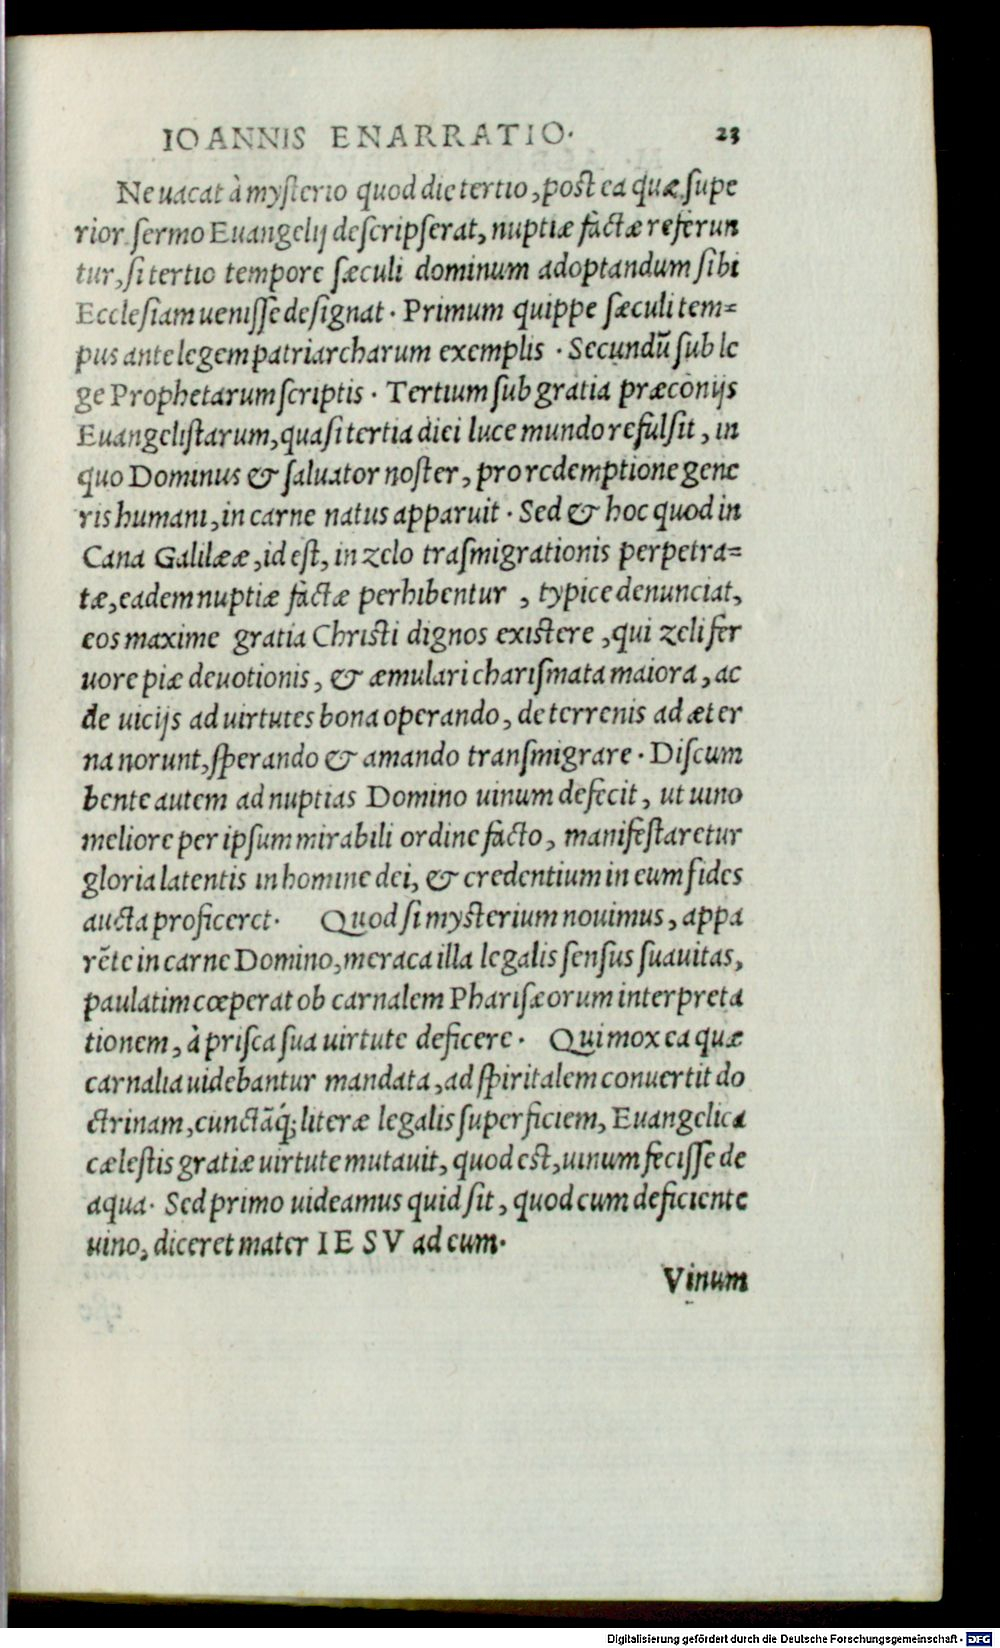 IOANNIS ENARRATIO· 23
Ne uacat à mysterio quod die tertio, post ea quæ supe
rior sermo Euangelij descripserat, nuptiæ factæ referun
tur, si tertio tempore sæculi dominum adoptandum sibi
Ecclesiam uenisse designat · Primum quippe sæculi tem=
pus ante legem patriarcharum exemplis · Secundũ sub le
ge Prophetarum scriptis · Tertium sub gratia præconijs
Euangelistarum, quasi tertia diei luce mundo refulsit, in
quo Dominus & saluator noster, pro redemptione gene
ris humani, in carne natus apparuit · Sed & hoc quod in
Cana Galilææ, id est, in zelo trasmigrationis perpetra=
tæ, eadem nuptiæ factæ perhibentur , typice denunciat,
eos maxime gratia Christi dignos existere, qui zeli fer
uore piæ deuotionis, & æmulari charismata maiora, ac
de uicijs ad uirtutes bona operando, de terrenis ad æter
na norunt, sperando & amando transmigrare · Discum
bente autem ad nuptias Domino uinum defecit, ut uino
meliore per ipsum mirabili ordine facto, manifestaretur
gloria latentis in homine dei, & credentium in eum fides
aucta proficeret· Quod si mysterium nouimus, appa
rẽte in carne Domino, meraca illa legalis sensus suauitas,
paulatim cœperat ob carnalem Pharisæorum interpreta
tionem, à prisca sua uirtute deficere · Qui mox ea quæ
carnalia uidebantur mandata, ad spiritalem conuertit do
ctrinam, cunctãq́; literæ legalis superficiem, Euangelica
cælestis gratiæ uirtute mutauit, quod est, uinum fecisse de
aqua· Sed primo uideamus quid sit, quod cum deficiente
uino, diceret mater IESV ad eum·
Vinum
Digitalisierung gefördert durch die Deutsche Forschungsgemeinschaft - DFG